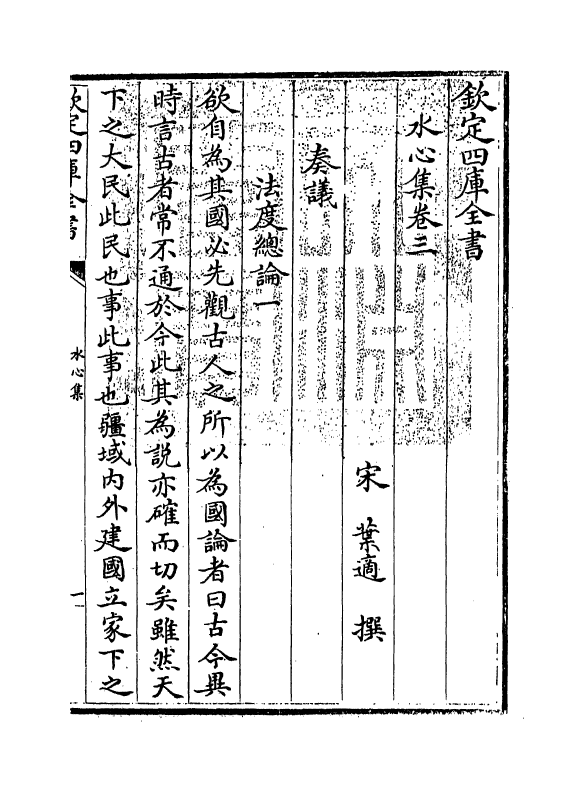 欽定四庫全書
水心集卷三
宋 葉適 撰
奏議
法度總論一
欲自為其國必先觀古人之所以為國論者曰古今異
時言古者常不通於今此其為說亦確而切矣雖然天
下之大民此民也事此事也疆域內外建國立家下之
欽定四庫全書
水心集
一